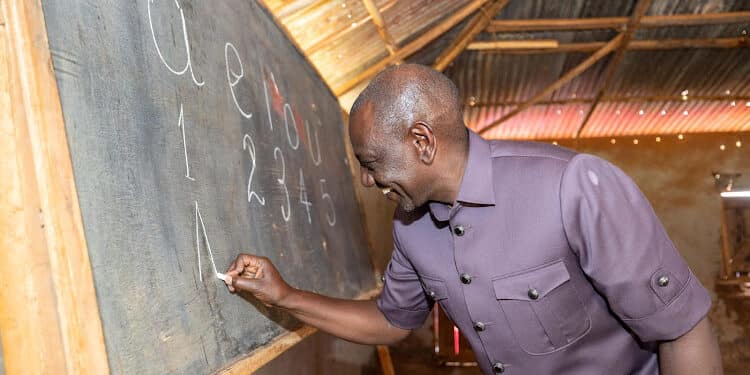 a e i o u
1 2 3 4 5